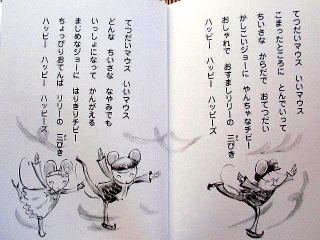 てつだいマウス いいマウス
こまったところに とんでいって
ちいさな からだで おてつだい
かしこいジョーに やんちゃなチビー
おしゃれで おすましリリーの 三びき
ハッピー ハッピー ハッピーズ
てつだいマウス いいマウス
どんな ちいさな なやみでも
いっしょになって かんがえる
まじめなジョーに はりきりチビー
ちょっぴりおてんば リリーの 三びき
ハッピー ハッピー ハッピーズ